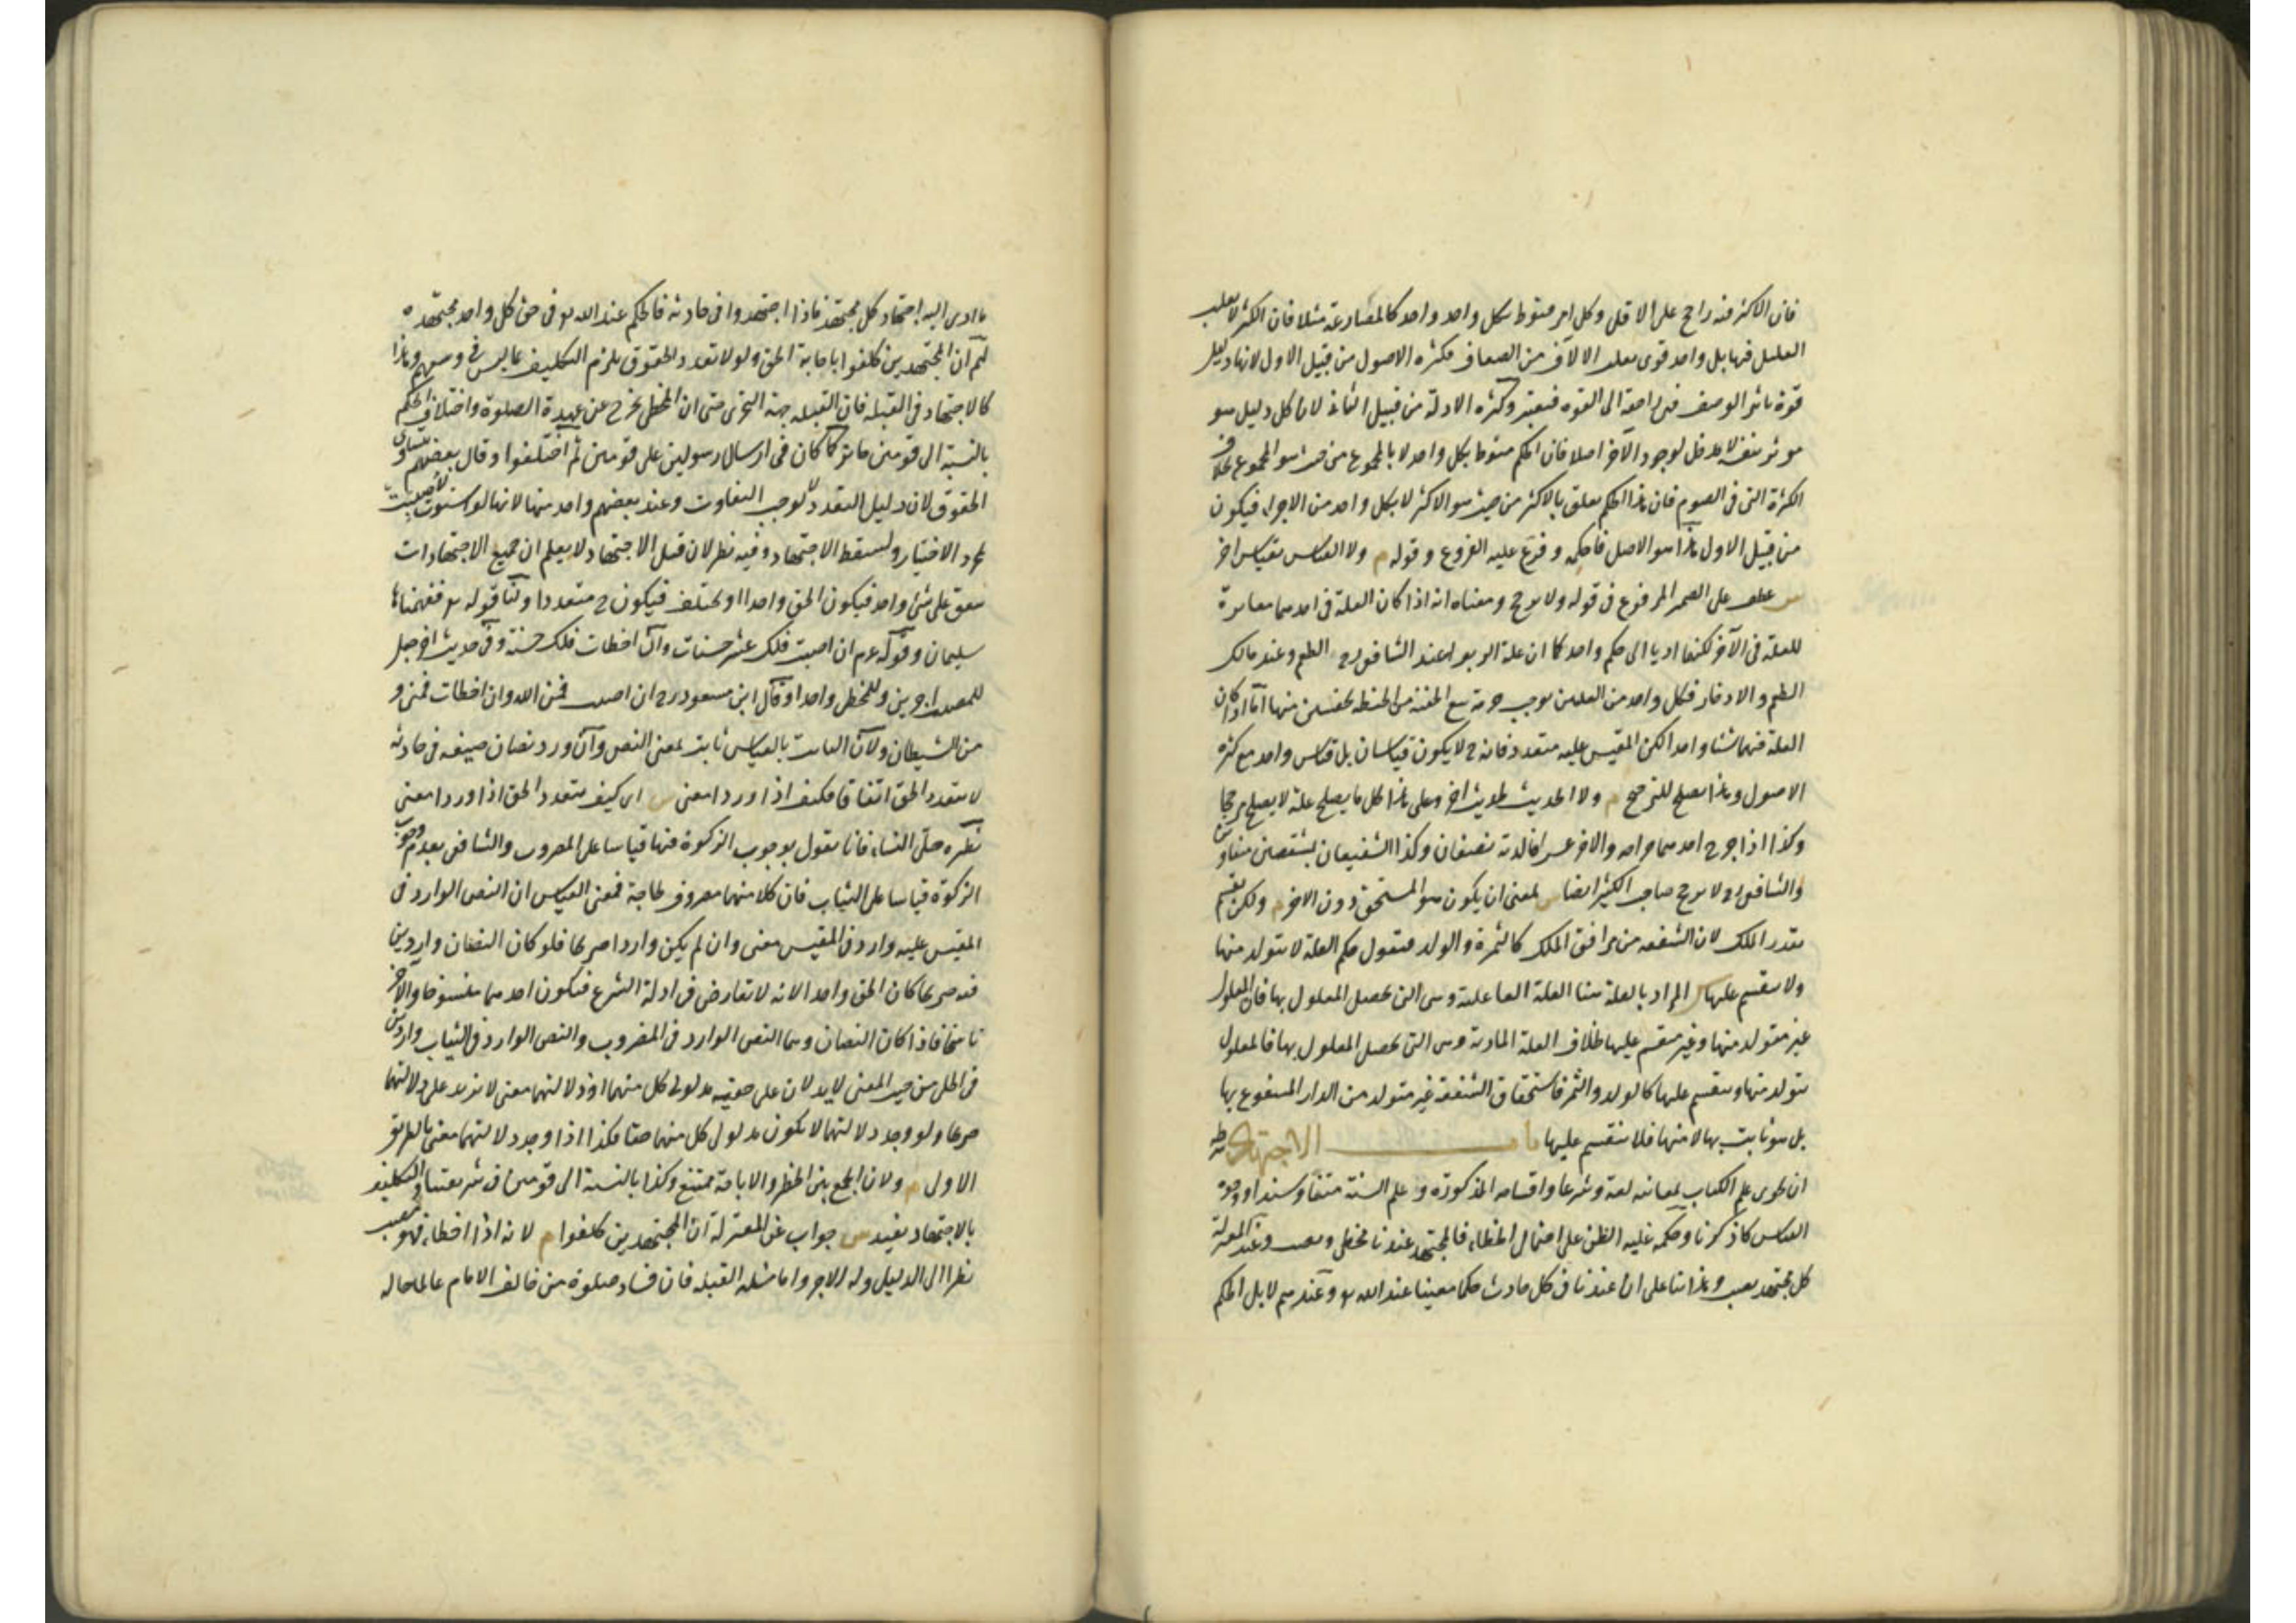 فان الاكثر فيه راجح على الاقل وكل امر منوط بكل واحد واحد كالمصارعة مثلا فان الكثير لا يغلب
القليل فيها بل واحد قوى يغلب الالاف من الضعاف فكثرة الاصول من قبيل الاول لانها دليل
قوة تاثير الوصف فهى راجعة الى القوة فيعتبر وكثرة الادلة من قبيل الثانى لان كل دليل هو
موثر بنفسه لا مدخل لوجود الآخر اصلا فان الحكم منوط بكل واحد لا بالمجموع من حيث هو المجموع بخلاف
الكثرة التى فى الصوم فان هذا الحكم تعلق بالاكثر من حيث هو الاكثر لا بكل واحد من الاجزاء فيكون
من قبيل الاول هذا هو الاصل فاحكمه وفرّع عليه الفروع وقوله م ولا القياس بقياس اخر
س عطف على الضمير المرفوع فى قوله ولا يرجح ومعناه انه اذا كان العلة فى احدهما مغايرة
للعلة فى الآخر لكنهما اديا الى حكم واحد كما ان علة الربوا عند الشافعى رح الطعم وعند مالك
الطعم والادخار فكل واحد من العلتين يوجب حرمة بيع الحفنة من الحنطة بحفنتين منها اما اذا كان
العلة فيهما شيئا واحدا لكن المقيس عليه متعدد فانه ح لا يكون قياسان بل قياس واحد مع كثرة
الاصول وهذا يصلح للترجيح م ولا الحديث بحديث اخر وعلى هذا كل ما يصلح علة لا يصلح مرجحا
وكذا اذا جرح احدهما جراحة والاخر عشرا فالدية نصفان وكذا الشفيعان بشقصين متفاوتين
والشافعى رح لا يرجح صاحب الكثير ايضا س بمعنى ان يكون هو المستحق دون الاخر م ولكن يقسم
بقدر الملك لان الشفعة من مرافق الملك كالثمرة والولد فنقول حكم العلة لا يتولد منها
ولا ينقسم عليها س المراد بالعلة هنا العلة الفاعلية وهى التى يحصل المعلول بها فان المعلول
غير متولد منها وغير منقسم عليها بخلاف العلة المادية وهى التى يحصل المعلول بها فالمعلول
يتولد منها وينقسم عليها كالولد والثمر فاستحقاق الشفعة غير متولد من الدار المشفوع بها
بل هو ثابت بها لا منها فلا ينقسم عليها باب الاجتهاد شرطه
ان يحوى علم الكتاب بمعانيه لغة وشرعا واقسامه المذكورة وعلم السنة متنا وسندا ووجوه
القياس كما ذكرنا وحكمه غلبة الظن على احتمال الخطاء فالمجتهد عندنا يخطى ويصيب وعند المعتزلة
كل مجتهد مصيب وهذا بناء على ان عندنا فى كل حادث حكما معينا عند الله تع وعندهم لا بل الحكم
ما ادى اليه اجتهاد كل مجتهد فاذا اجتهدوا فى حادثة فالحكم عند الله تع فى حق كل واحد مجتهده
لهم ان المجتهدين كلفوا باصابة الحق ولولا تعدد الحقوق يلزم التكليف بما ليس فى وسعهم وهذا
كالاجتهاد فى القبلة فان القبلة جهة التحرى حتى ان المخطى يخرج عن عهدة الصلوة واختلاف الحكم
بالنسبة الى قومين جائز كما كان فى ارسال رسولين على قومين ثم اختلفوا وقال بعضهم بتساوى
الحقوق لان دليل التعدد لا يوجب التفاوت وعند بعضهم واحد منها لانها لو استوت لاصيبت
بمجرد الاختيار ولسقط الاجتهاد وفيه نظر لان قبل الاجتهاد لا يعلم ان جميع الاجتهادات
يتفق على شئ واحد فيكون الحق واحدا او يختلف فيكون ح متعددا ولنا قوله تع ففهمناها
سليمان وقوله عم ان اصبت فلك عشر حسنات وان اخطات فلك حسنة وفى حديث اخر جعل
للمصيب اجرين وللمخطى واحدا وقال ابن مسعود رح ان اصبت فمن الله وان اخطات فمنى و
من الشيطان ولان الثابت بالقياس ثابت بمعنى النص وان ورد نصان صيغة فى حادثة
لا يتعدد الحق اتفاقا فكيف اذا وردا معنى س اى كيف يتعدد الحق اذا وردا معنى
نظيره حلى النساء فانا نقول بوجوب الزكوة فيها قياسا على المضروب والشافعى بعدم وجوب
الزكوة قياسا على الثياب فان كلا منهما مصروف لحاجة فمعنى القياس ان النص الوارد فى
المقيس عليه وارد فى المقيس معنى وان لم يكن واردا صريحا فلو كان النصان واردين
فيه صريحا كان الحق واحدا لانه لا تعارض فى ادلة الشرع فيكون احدهما منسوخا والآخر
ناسخا فاذا كان النصان وهما النص الوارد فى المضروب والنص الوارد فى الثياب واردين
فى الحلى من حيث المعنى لا يدلان على حقية مدلولى كل منهما اذ دلالتهما معنى لا تزيد على دلالتهما
صريحا ولو وجد دلالتهما لا يكون مدلول كل منهما حقا فكذا اذا وجد دلالتهما معنى بالطريق
الاول م ولان الجمع بين الحظر والاباحة ممتنع وكذا بالنسبة الى قومين فى شريعتنا والتكليف
بالاجتهاد يفيد س جواب عن المعتزلة ان المجتهدين كلفوا م لانه اذا اخطاء فهو مصيب
نظرا الى الدليل وله الاجر واما مسئلة القبلة فان فساد صلوة من خالف الامام عالما حاله